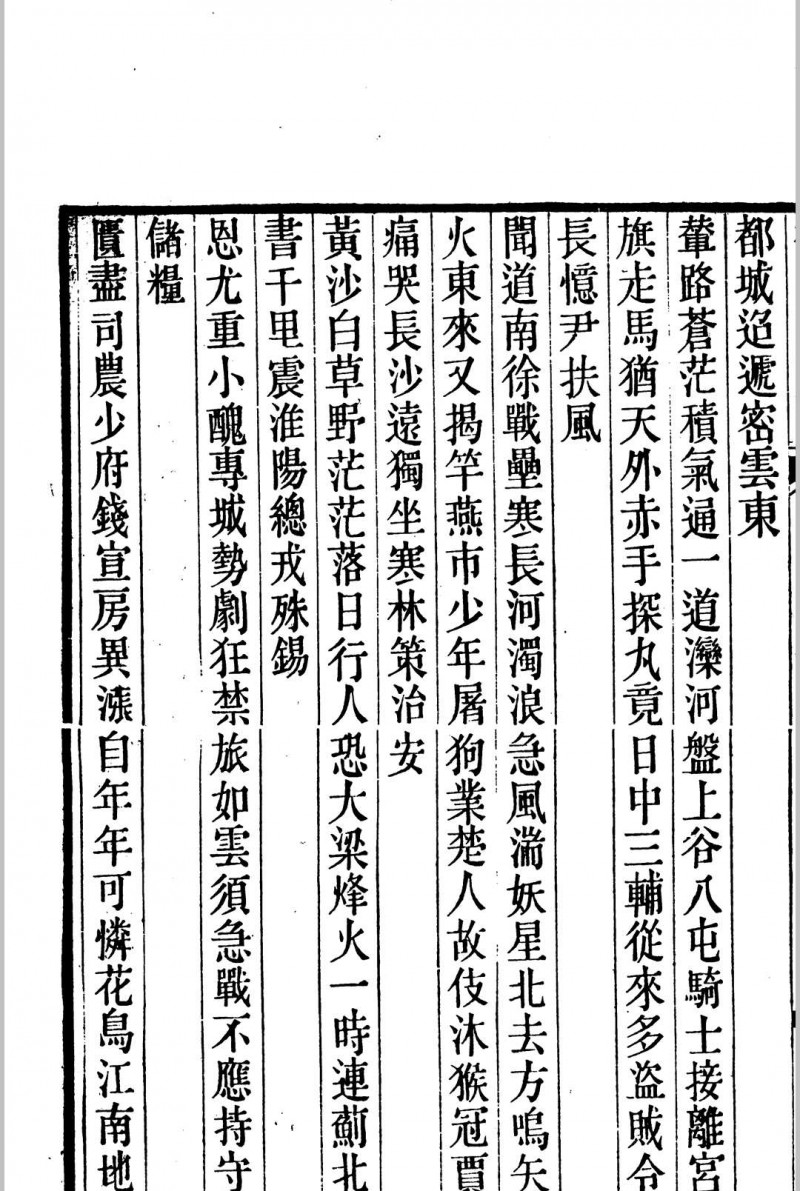 都城迢遞密雲東
輦路蒼茫積氣通一道灤河盤上谷八屯騎士接離宮
旗走馬猶天外赤手探丸竟日中三輔從來多盜賊令
長憶尹扶風
聞道南徐戰壘寒長河濁浪急風湍妖星北去方鳴矢
火東來又揭竿燕市少年屠狗業楚人故伎沐猴冠賈
痛哭長沙遠獨坐寒林策治安
黃沙白草野茫茫落日行人恐大梁烽火一時連薊北
書千里震淮陽總戎殊錫
恩尤重小醜專城勢劇狂禁旅如雲須急戰不應持守
儲糧
匱盡司農少府錢宣房異漲自年年可憐花鳥江南地